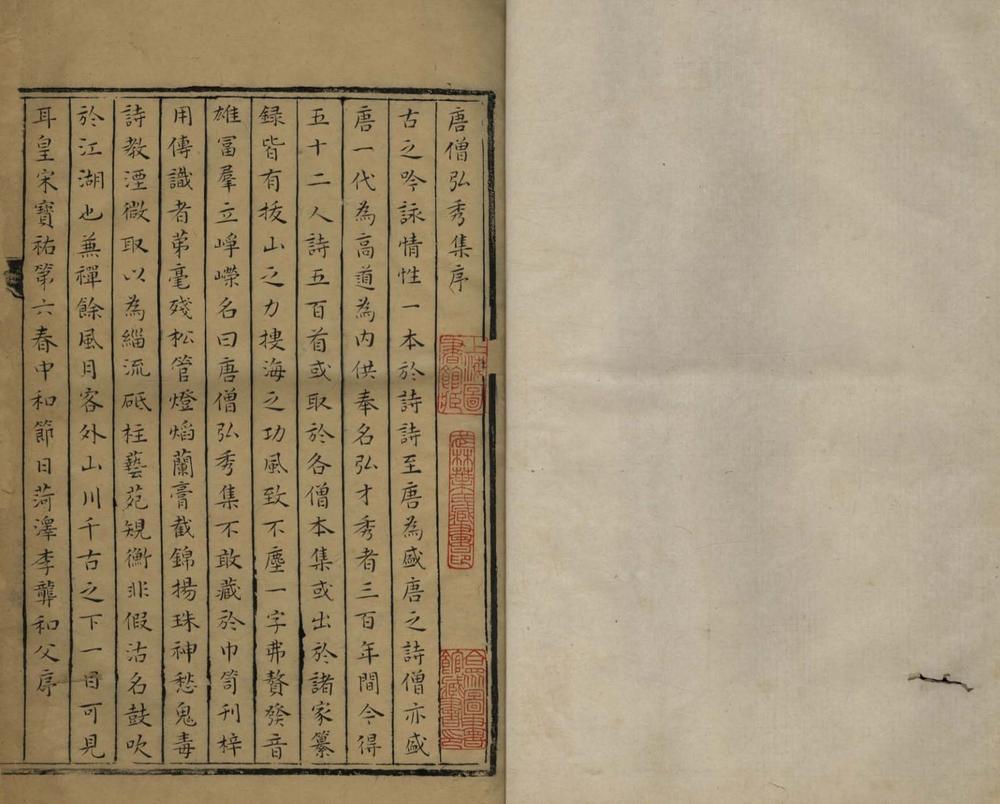 唐僧弘秀集序
古之吟詠情性一本於詩詩至唐為盛唐之詩僧亦盛
唐一代為高道為内供奉名弘才秀者三百年間今得
五十二人詩五百首或取於各僧本集或出於諸家纂
録皆有拔山之力摟海之功風致不塵一字弗贅發音
雄冨羣立崢嶸名曰唐僧弘秀集不敢藏於巾笥刊梓
用傳識者苐毫殘松管燈熖蘭膏截錦揚珠神愁鬼毒
詩教湮微取以為緇流砥柱藝苑䂓衡非假沽名鼓吹
於江湖也兼禪餘風月客外山川千古之下一目可見
耳皇宋寶祐第六春中和節日菏澤李龏和父序
上海圖書館藏